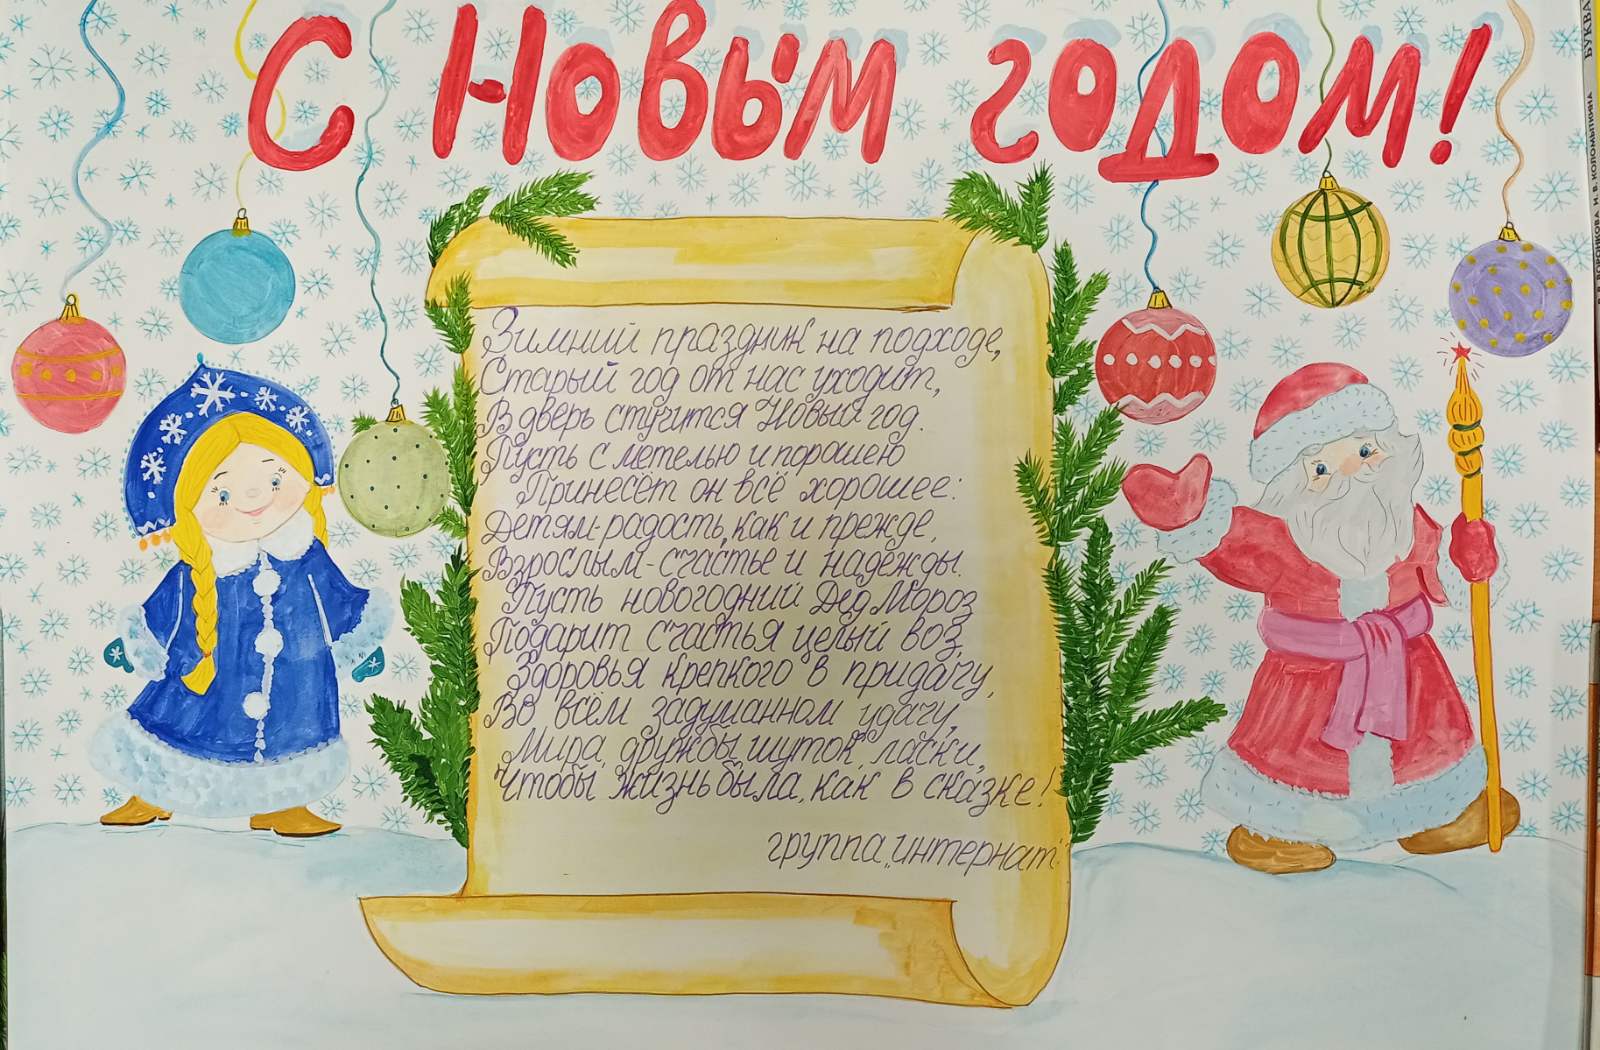 С Новым годом!
Зимний праздник на подходе,
Старый год от нас уходит,
В дверь стучится Новый год.
Пусть с метелью и порошею
Принесёт он всё хорошее:
Детям-радость, как и прежде,
Взрослым-счастье и надежды.
Пусть новогодний Дед Мороз
Подарит счастья целый воз,
Здоровья крепкого в придачу,
Во всём задуманном удачу,
Мира, дружбы, шуток, ласки,
Чтобы жизнь была, как в сказке!
группа „интернат"
БУКВА
ВОРОНКОВА, Н. В. КОЛОМЫТКИНА